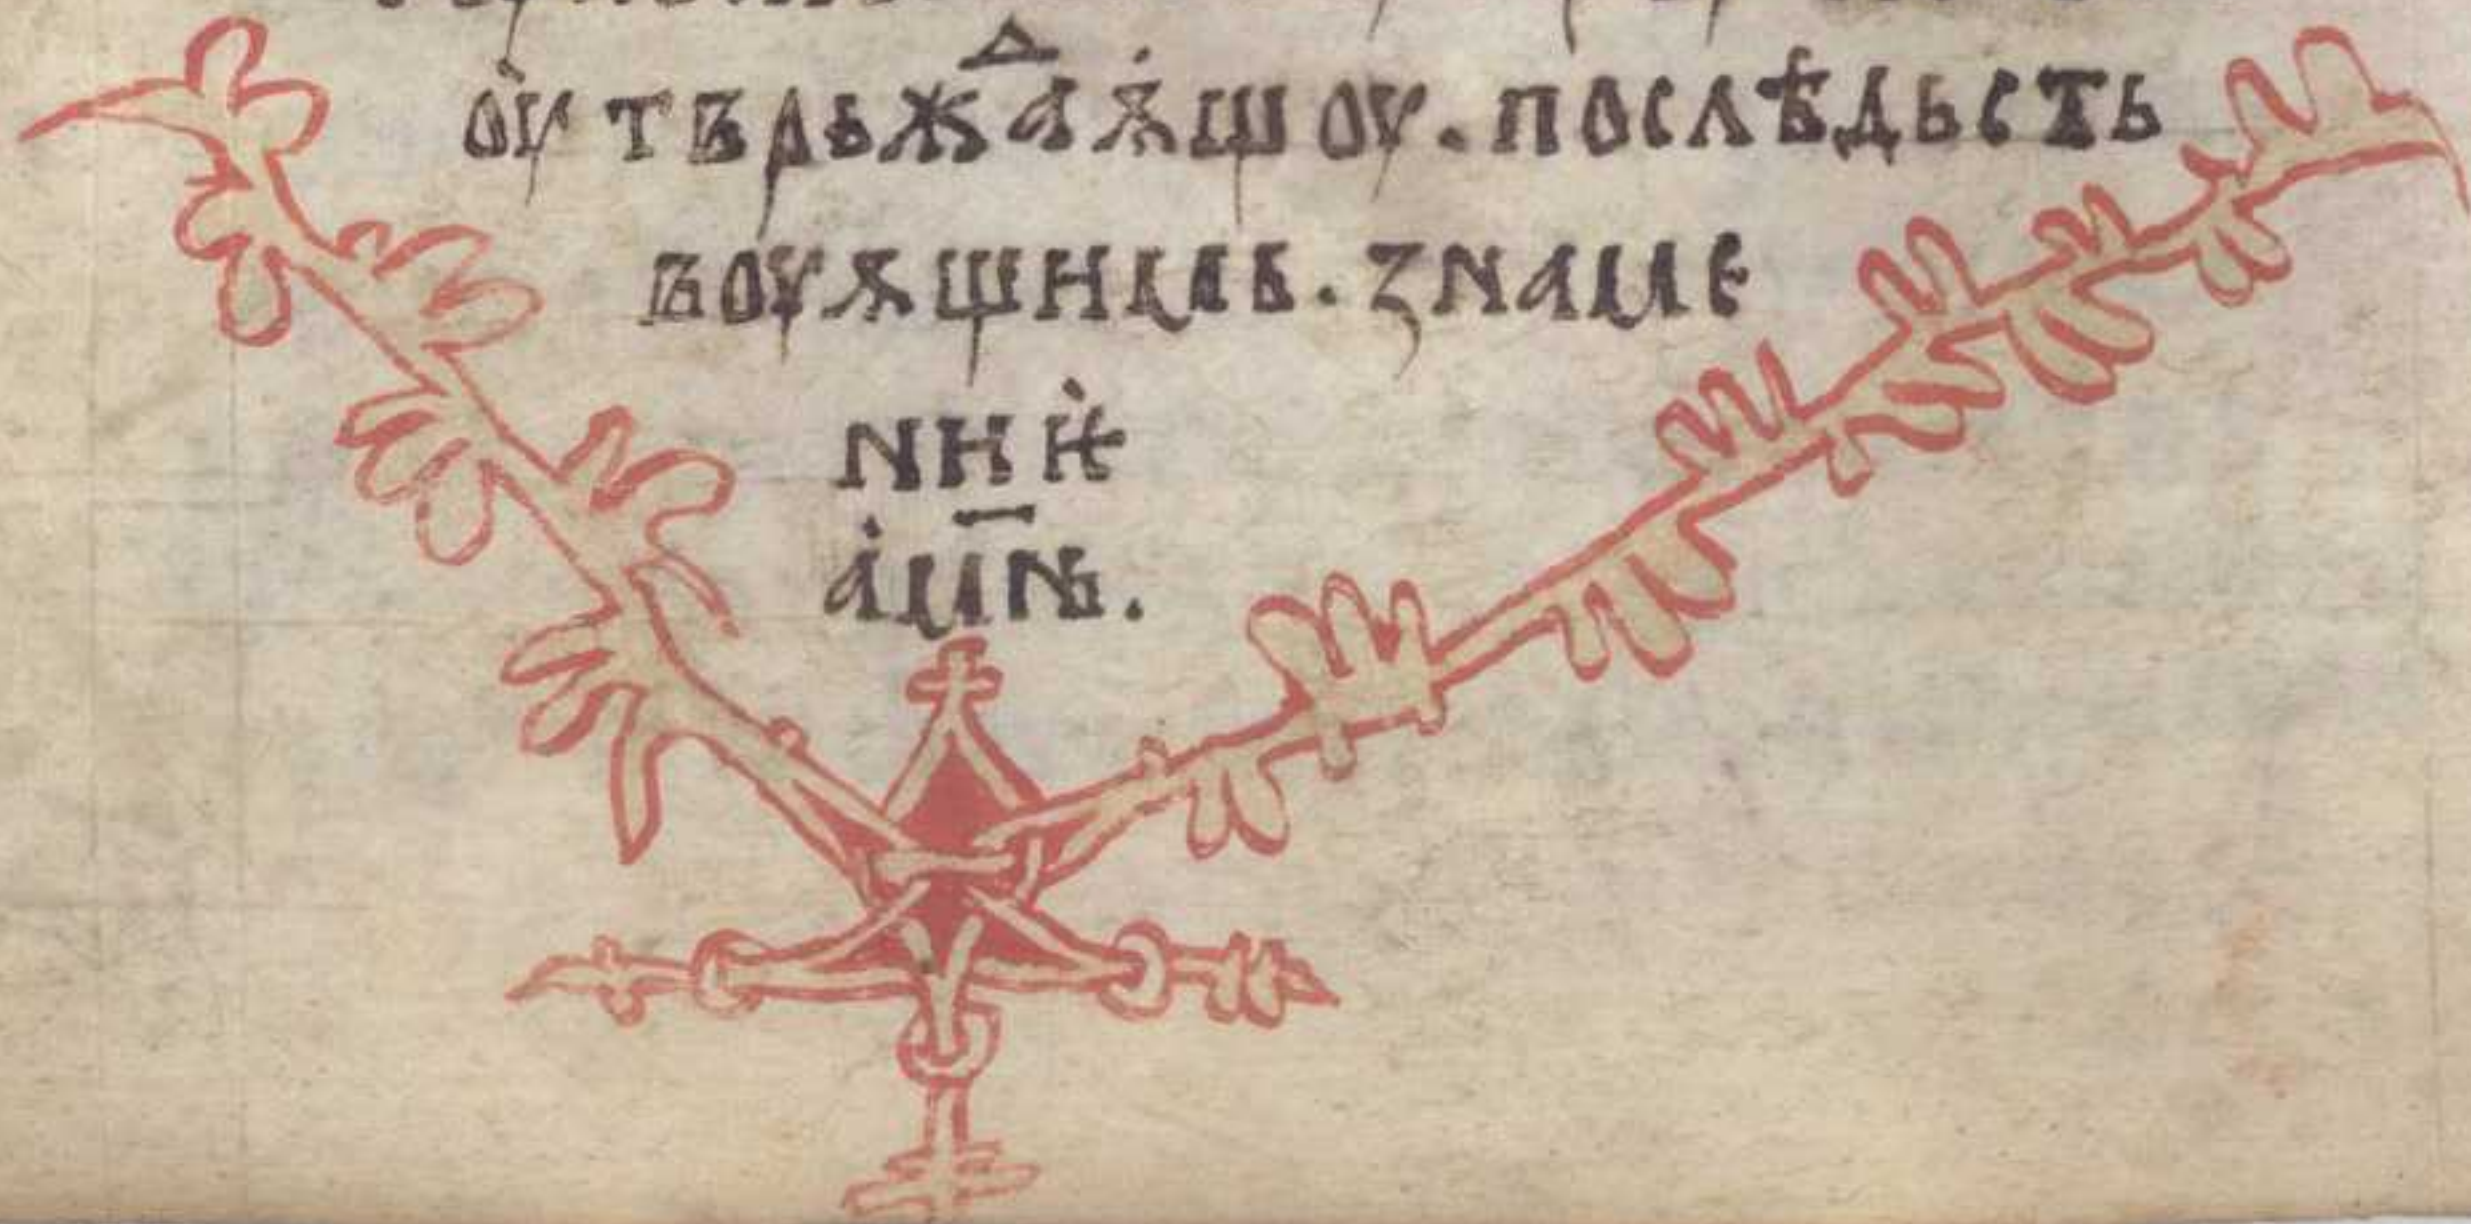 оу҆тврьжⷣаѫ҆шоу. послѣдьсть
воуѫщнмь. ꙁнаме
нни҆ѥ
а҆м҃нь.